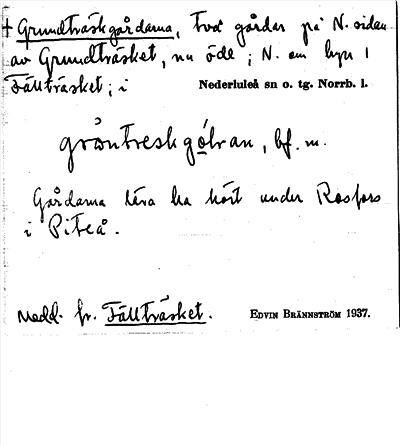 + Grundträskgårdarna, två gårdar på N. sidan
av Grundträsket, nu öde; N. om byn i
Fällträsket; i Nederluleå sn o. tg. Norrb. l.
gròntreskgólran, bf. m.
Gårdarna lära ha hört under Rosfors
i Piteå.
Medd. fr. Fällträsket. EDVIN BRÄNNSTRÖM 1937.